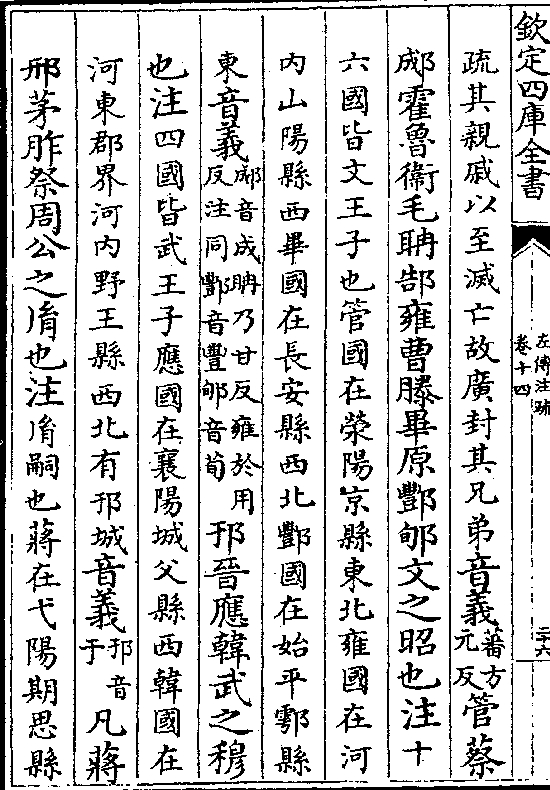 欽定四庫全書
左傳注疏
卷十四
二十六
疏其親戚以至滅亡故廣封其兄弟音義蕃方元反管蔡
郕霍魯衛毛聃郜雍曹滕畢原酆郇文之昭也注十
六國皆文王子也管國在滎陽京縣東北雍國在河
內山陽縣西畢國在長安縣西北酆國在始平鄠縣
東音義郕音成聃乃甘反雍於用反注同酆音豐郇音荀邘晉應韓武之穆
也注四國皆武王子應國在襄陽城父縣西韓國在
河東郡界河內野王縣西北有邘城音義邘音于凡蔣
邢茅胙祭周公之胤也注胤嗣也蔣在弋陽期思縣